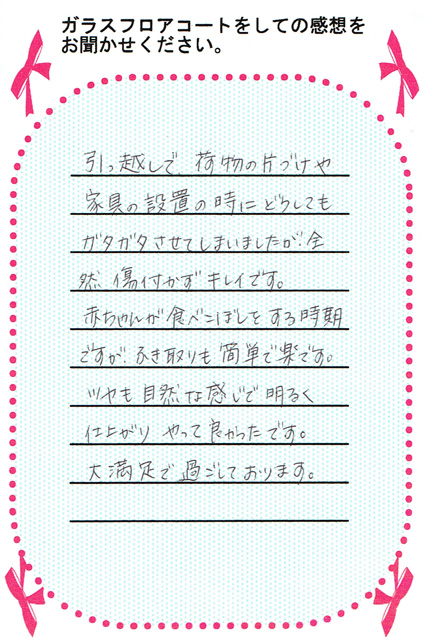 ガラスフロアコートをしての感想を
お聞かせください。
引っ越しで、荷物の片づけや
家具の設置の時にどうしても
ガタガタさせてしまいましたが、全
然傷付かずキレイです。
赤ちゃんが食べこぼしをする時期
ですが、ふき取りも簡単で楽です。
ツヤも自然な感じで明るく
仕上がり やって良かったです。
大満足で過ごしております。